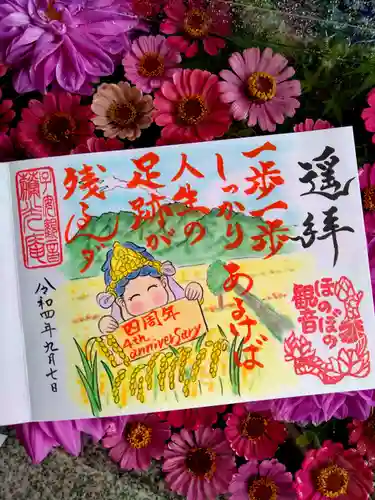 遥拝
一歩一歩
しっかり
あるけば
人生の
足跡が
ほのぼの
観音
四周年
4th
anniversary
令和四年九月七日